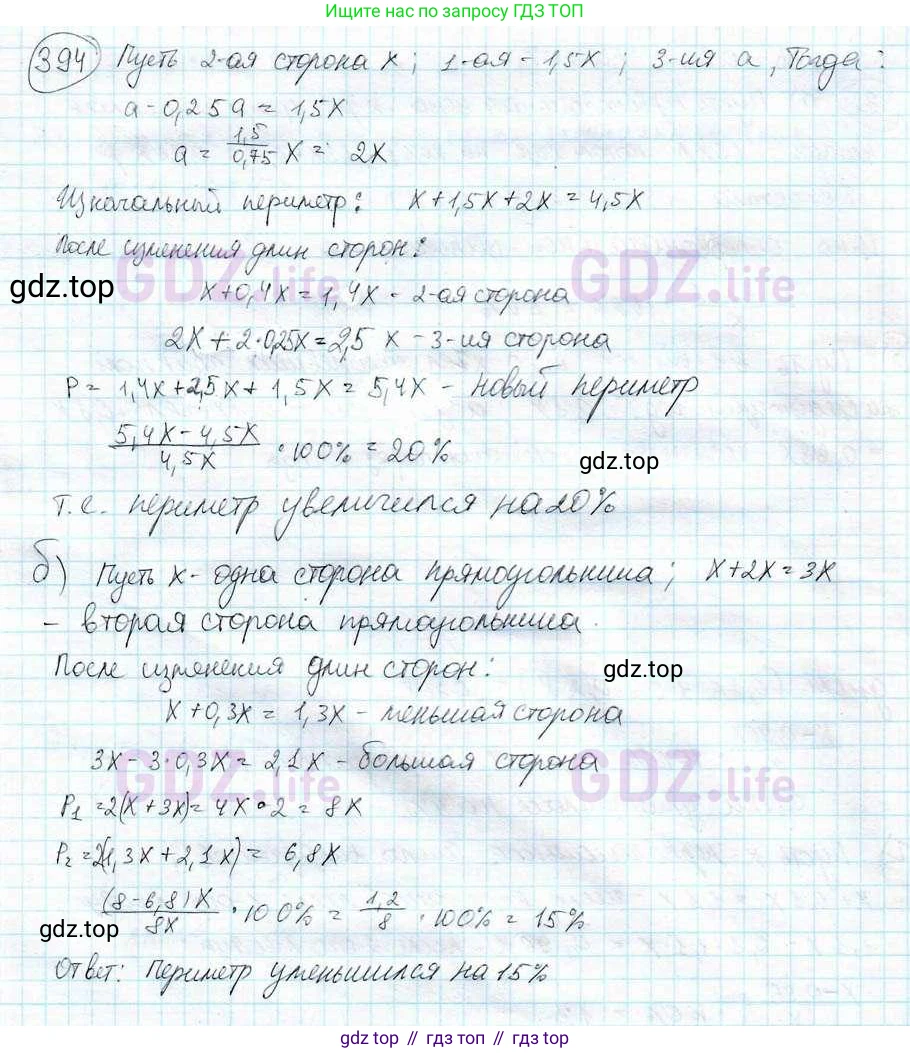 Ищите нас по запросу ГДЗ ТОП
394 Пусть 2-ая сторона x; 1-ая - 1,5x; 3-ия a, Тогда:
a - 0,25a = 1,5x
a = 1,5/0,75 x = 2x
Изначальный периметр: x+1,5x+2x = 4,5x
После изменения длин сторон:
GDZ.life GDZ.life
gdz.top
x+0,4x = 1,4x - 2-ая сторона
2x + 2·0,25x = 2,5 x - 3-ия сторона
P = 1,4x+2,5x+1,5x = 5,4x - новый периметр
(5,4x - 4,5x)/4,5x · 100% = 20%
gdz.top
т.е. периметр увеличился на 20%
б) Пусть x - одна сторона прямоугольника; x+2x=3x
- вторая сторона прямоугольника.
После изменения длин сторон:
gdz.top
x+0,3x = 1,3x - меньшая сторона
3x - 3·0,3x = 2,1x - большая сторона
GDZ.life GDZ.life
P₁ = 2(x+3x) = 4x·2 = 8x
P₂ = 2(1,3x+2,1x) = 6,8x
(8-6,8)x/8x · 100% = 1,2/8 · 100% = 15%
gdz.top
Ответ: Периметр уменьшился на 15%
gdz.top // гдз.топ // gdz.top